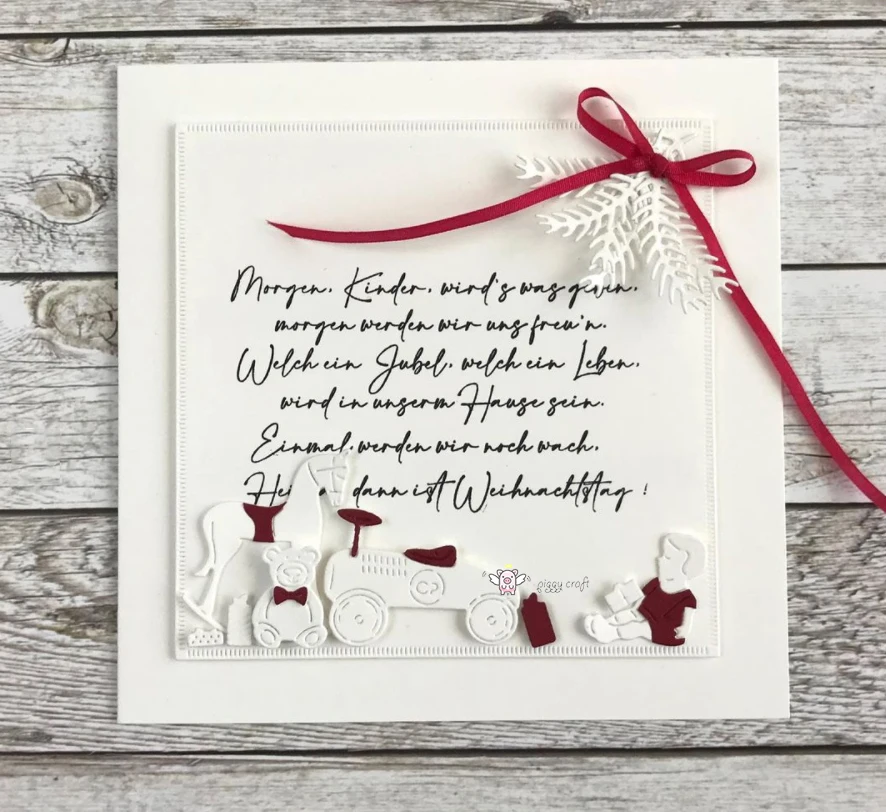 Morgen, Kinder, wird's was geben,
morgen werden wir uns freu'n.
Welch ein Jubel, welch ein Leben,
wird in unserm Hause sein.
Einmal werden wir noch wach,
dann ist Weihnachtstag !
piggy craft